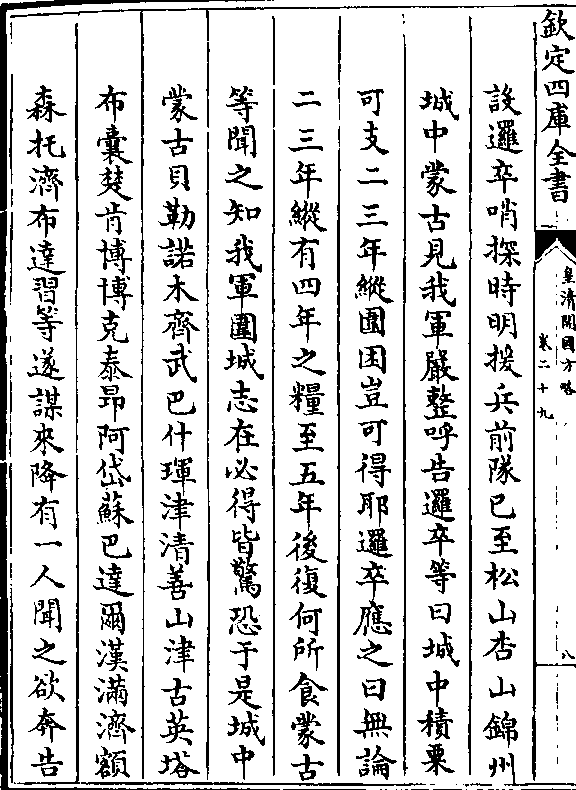 欽定四庫全書
皇清開國方略
卷二十九
八
設邏卒哨探時明援兵前隊已至松山杏山錦州
城中蒙古見我軍嚴整呼告邏卒等曰城中積粟
可支二三年縱圍困豈可得耶邏卒應之曰無論
二三年縱有四年之糧至五年後復何所食蒙古
等聞之知我軍圍城志在必得皆驚恐于是城中
蒙古貝勒諾木齊武巴什琿津清善山津古英塔
布囊楚肯博博克泰昂阿岱蘇巴達爾漢滿濟額
森托濟布達習等遂謀來降有一人聞之欲奔告